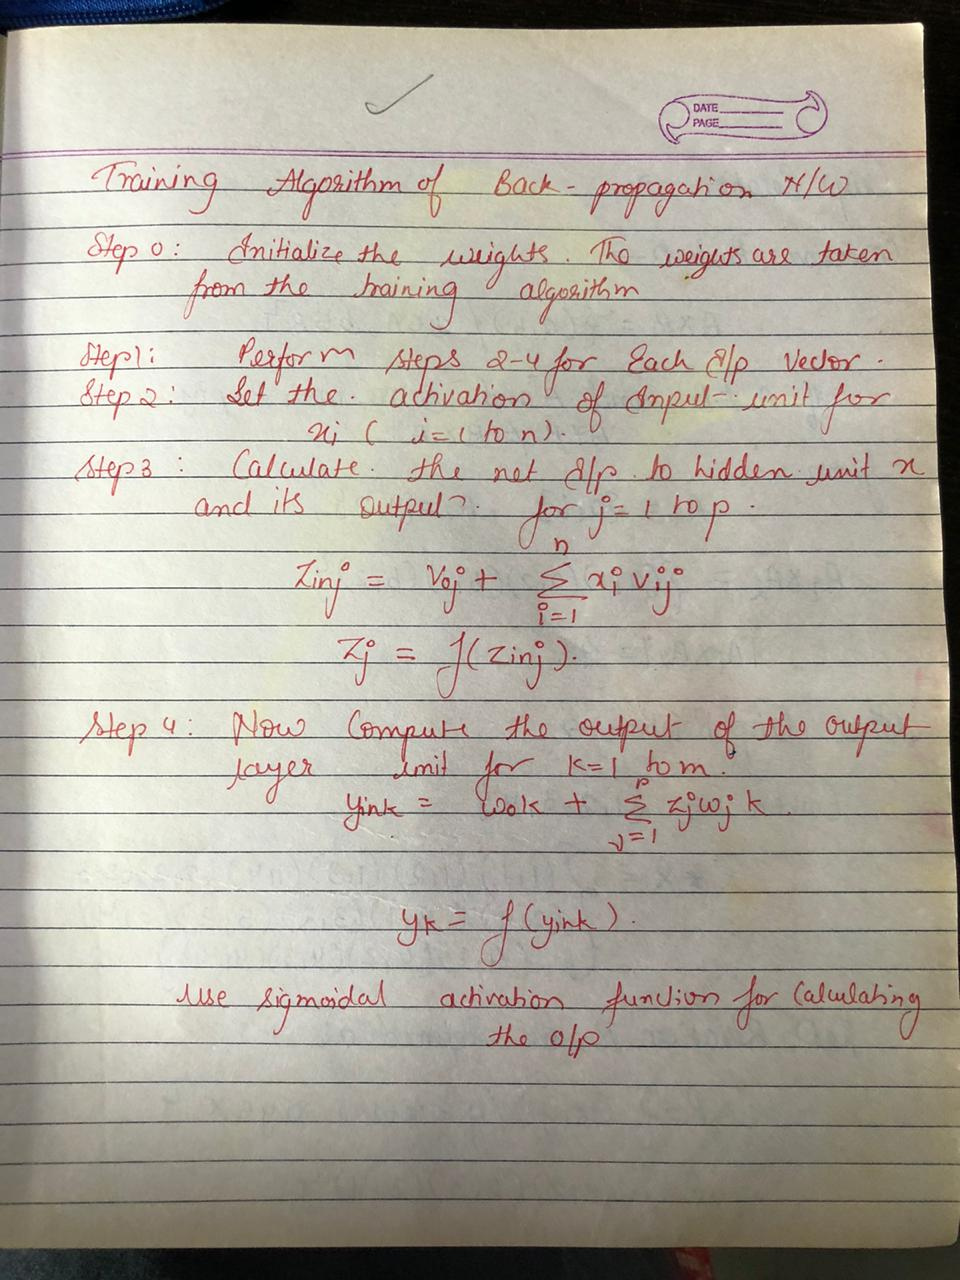 DATE
PAGE
Training Algorithm of Back-propagation N/W
Step 0: Initialize the weights. The weights are taken
from the training algorithm
Step1: Perform steps 2-4 for Each I/p Vector.
Step 2: Set the activation of Input unit for
xi ( i=1 to n).
Step3: Calculate the net I/p to hidden unit x
and its output for j=1 to p.
Zinj = Voj + n∑i=1 xi vij
Zj = f(Zinj).
Step 4: Now Compute the output of the output
layer unit for k=1 to m.
yink = wok + p∑j=1 zjwjk.
yk = f(yink).
Use sigmoidal activation function for Calculating
the o/p